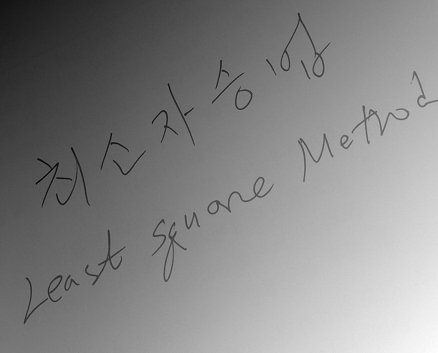 최소자승법
Least Square Method